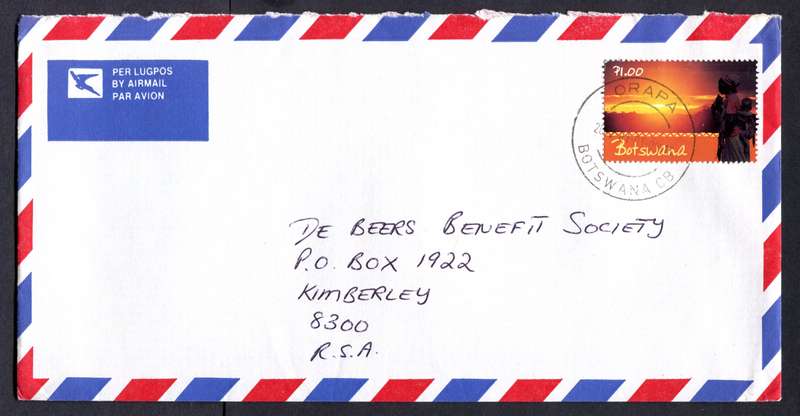 PER LUGPOS
BY AIRMAIL
PAR AVION
P1.00
Botswana
ORAPA
BOTSWANA CB
DE BEERS BENEFIT SOCIETY
P.O. BOX 1922
KIMBERLEY
8300
R.S.A.